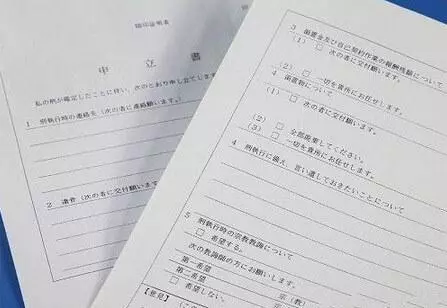 指印証明者
申 立 書
私の刑が確定したことに伴い、次のとおり申し立てします
1 刑執行時の連絡先（次の者に連絡願います。）
2 遺骨（次の者に交付願います。）
3 領置金及び自己契約作業の報酬残額について
(1) □ 次の者に交付願います。
(2) □ 一切を貴所にお任せします。
4 領置物について
(1) □ 次の者に交付願います。
(2) □ 全部廃棄してください。
(3) □ 一切を貴所にお任せします。
4 刑執行に備え 言い遺しておきたいことについて
5 刑執行時の宗教教誨について
□ 希望する。
次の教誨師の方にお願いします。
第一希望
第二希望
□ 希望しない。
宗（教）
【意見】